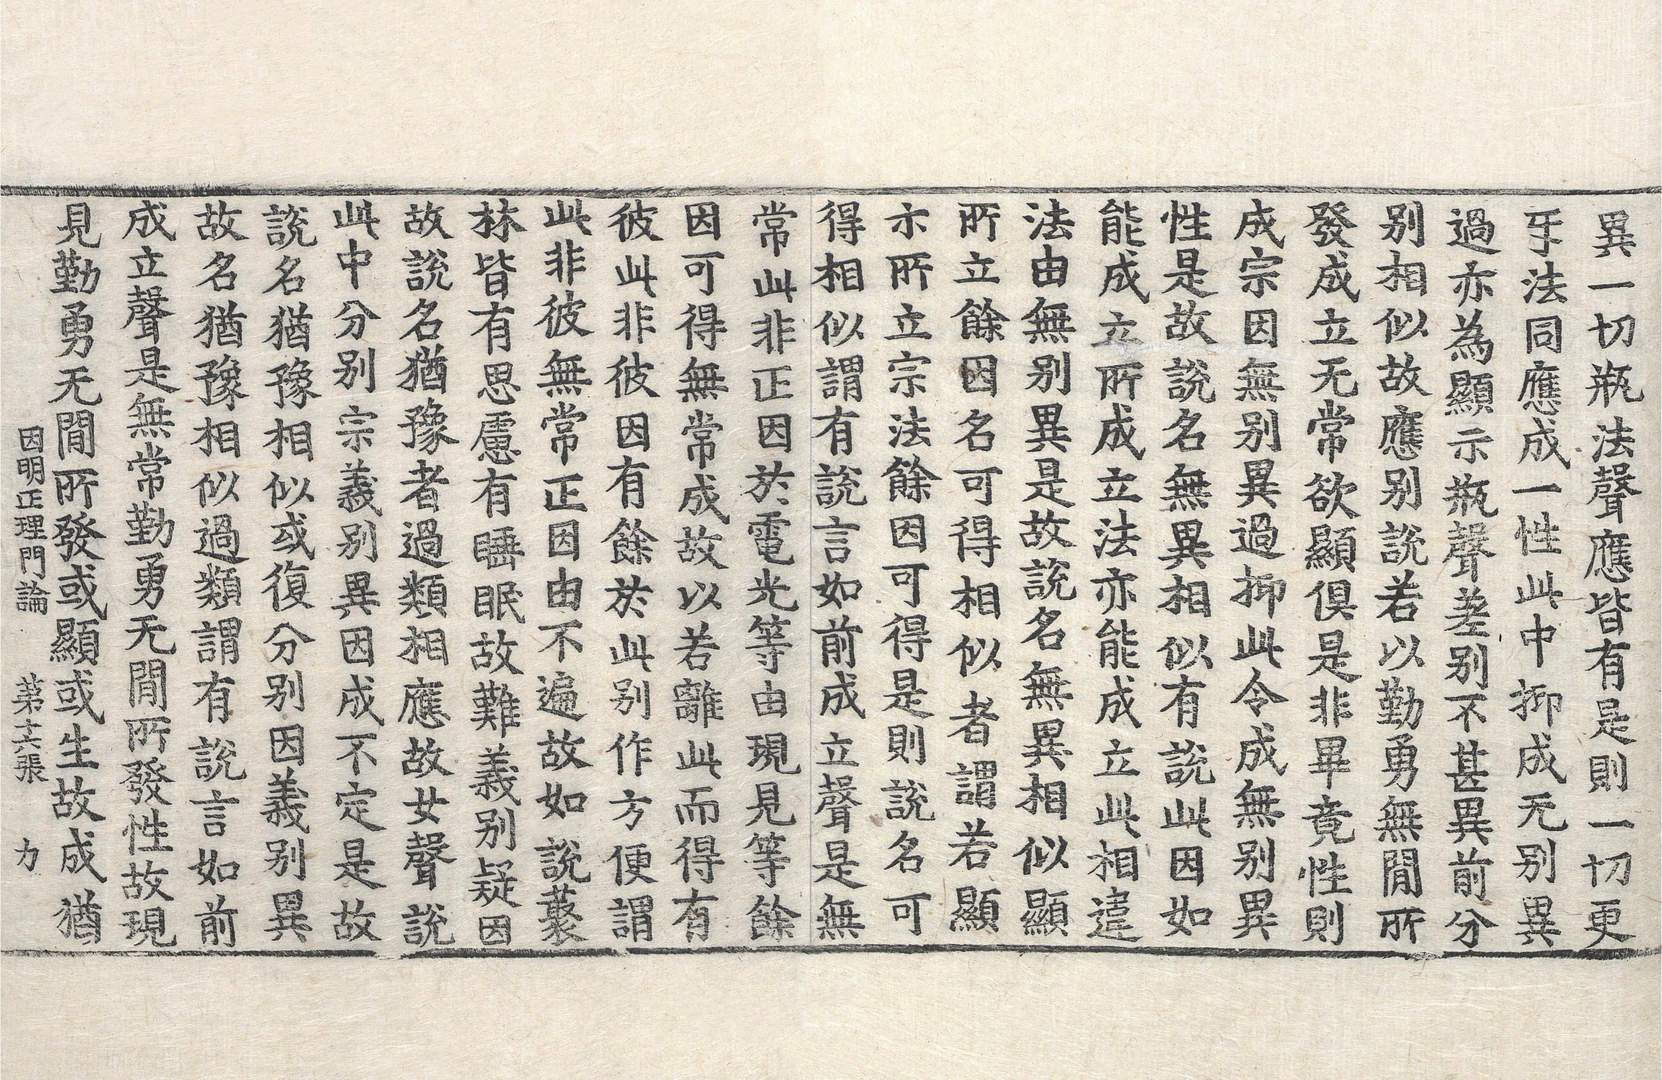 異一切瓶法聲應皆有是則一切更
㸦法同應成一性此中抑成无别異
過亦為顯示瓶聲差别不甚異前分
别相似故應别說若以勤勇無閒所
發成立无常欲顯俱是非畢竟性則
成宗因無别異過抑此令成無别異
性是故說名無異相似有說此因如
能成立所成立法亦能成立此相違
法由無别異是故說名無異相似顯
所立餘因名可得相似者謂若顯
示所立宗法餘因可得是則說名可
得相似謂有說言如前成立聲是無
常此非正因於電光等由現見等餘
因可得無常成故以若離此而得有
彼此非彼因有餘於此别作方便謂
此非彼無常正因由不遍故如說藂
林皆有思慮有睡眠故難義别疑因
故說名猶豫者過類相應故女聲說
此中分别宗義别異因成不定是故
說名猶豫相似或復分别因義别異
故名猶豫相似過類謂有說言如前
成立聲是無常勤勇无閒所發性故現
見勤勇无閒所發或顯或生故成猶
因明正理門論 第十六張 力